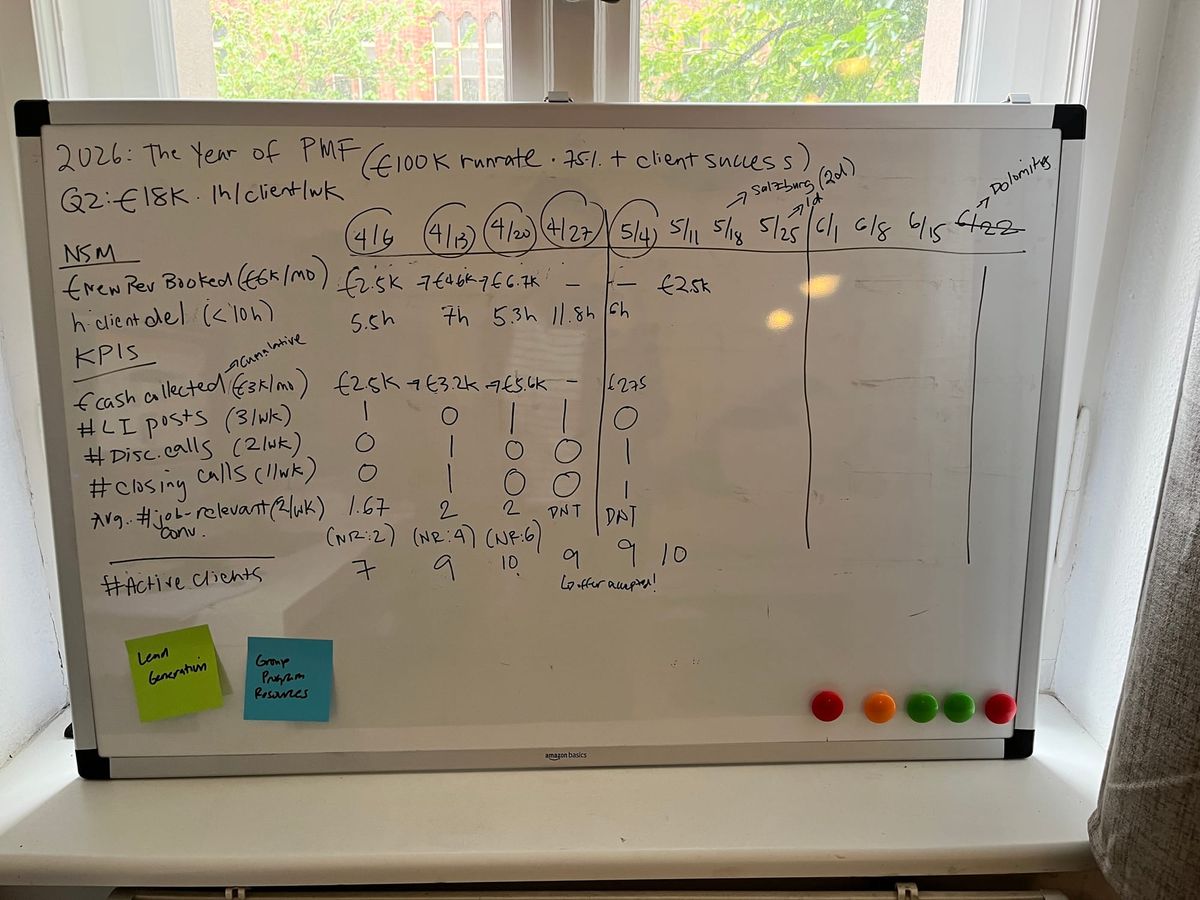 2026: The Year of PMF (€100K runrate · 75% + client success)
Q2: €18K · 1h/client/wk
→ Salzburg (2d)
→ 1d
→ Dolomites
4/6 4/13 4/20 4/27 5/4 5/11 5/18 5/25 6/1 6/8 6/15 6/22
NSM
€ New Rev Booked (€6K/mo) €2.5K → €4.6K → €6.7K – – €2.5K
h. client del (<10h) 5.5h 7h 5.3h 11.8h 6h
KPIS
→ cumulative
€ cash collected (€3K/mo) €2.5K → €3.2K → €5.6K – €275
# LI posts (3/wk) 1 0 1 1 0
# Disc. calls (2/wk) 0 1 0 0 1
# closing calls (1/wk) 0 1 0 0 1
Avg. # job-relevant (2/wk) 1.67 2 2 DNT DNT
conv. (NR:2) (NR:4) (NR:6)
# Active clients 7 9 10 9 9 10
↳ offer accepted!
Lead
Generation
Group
Program
Resources
amazon basics